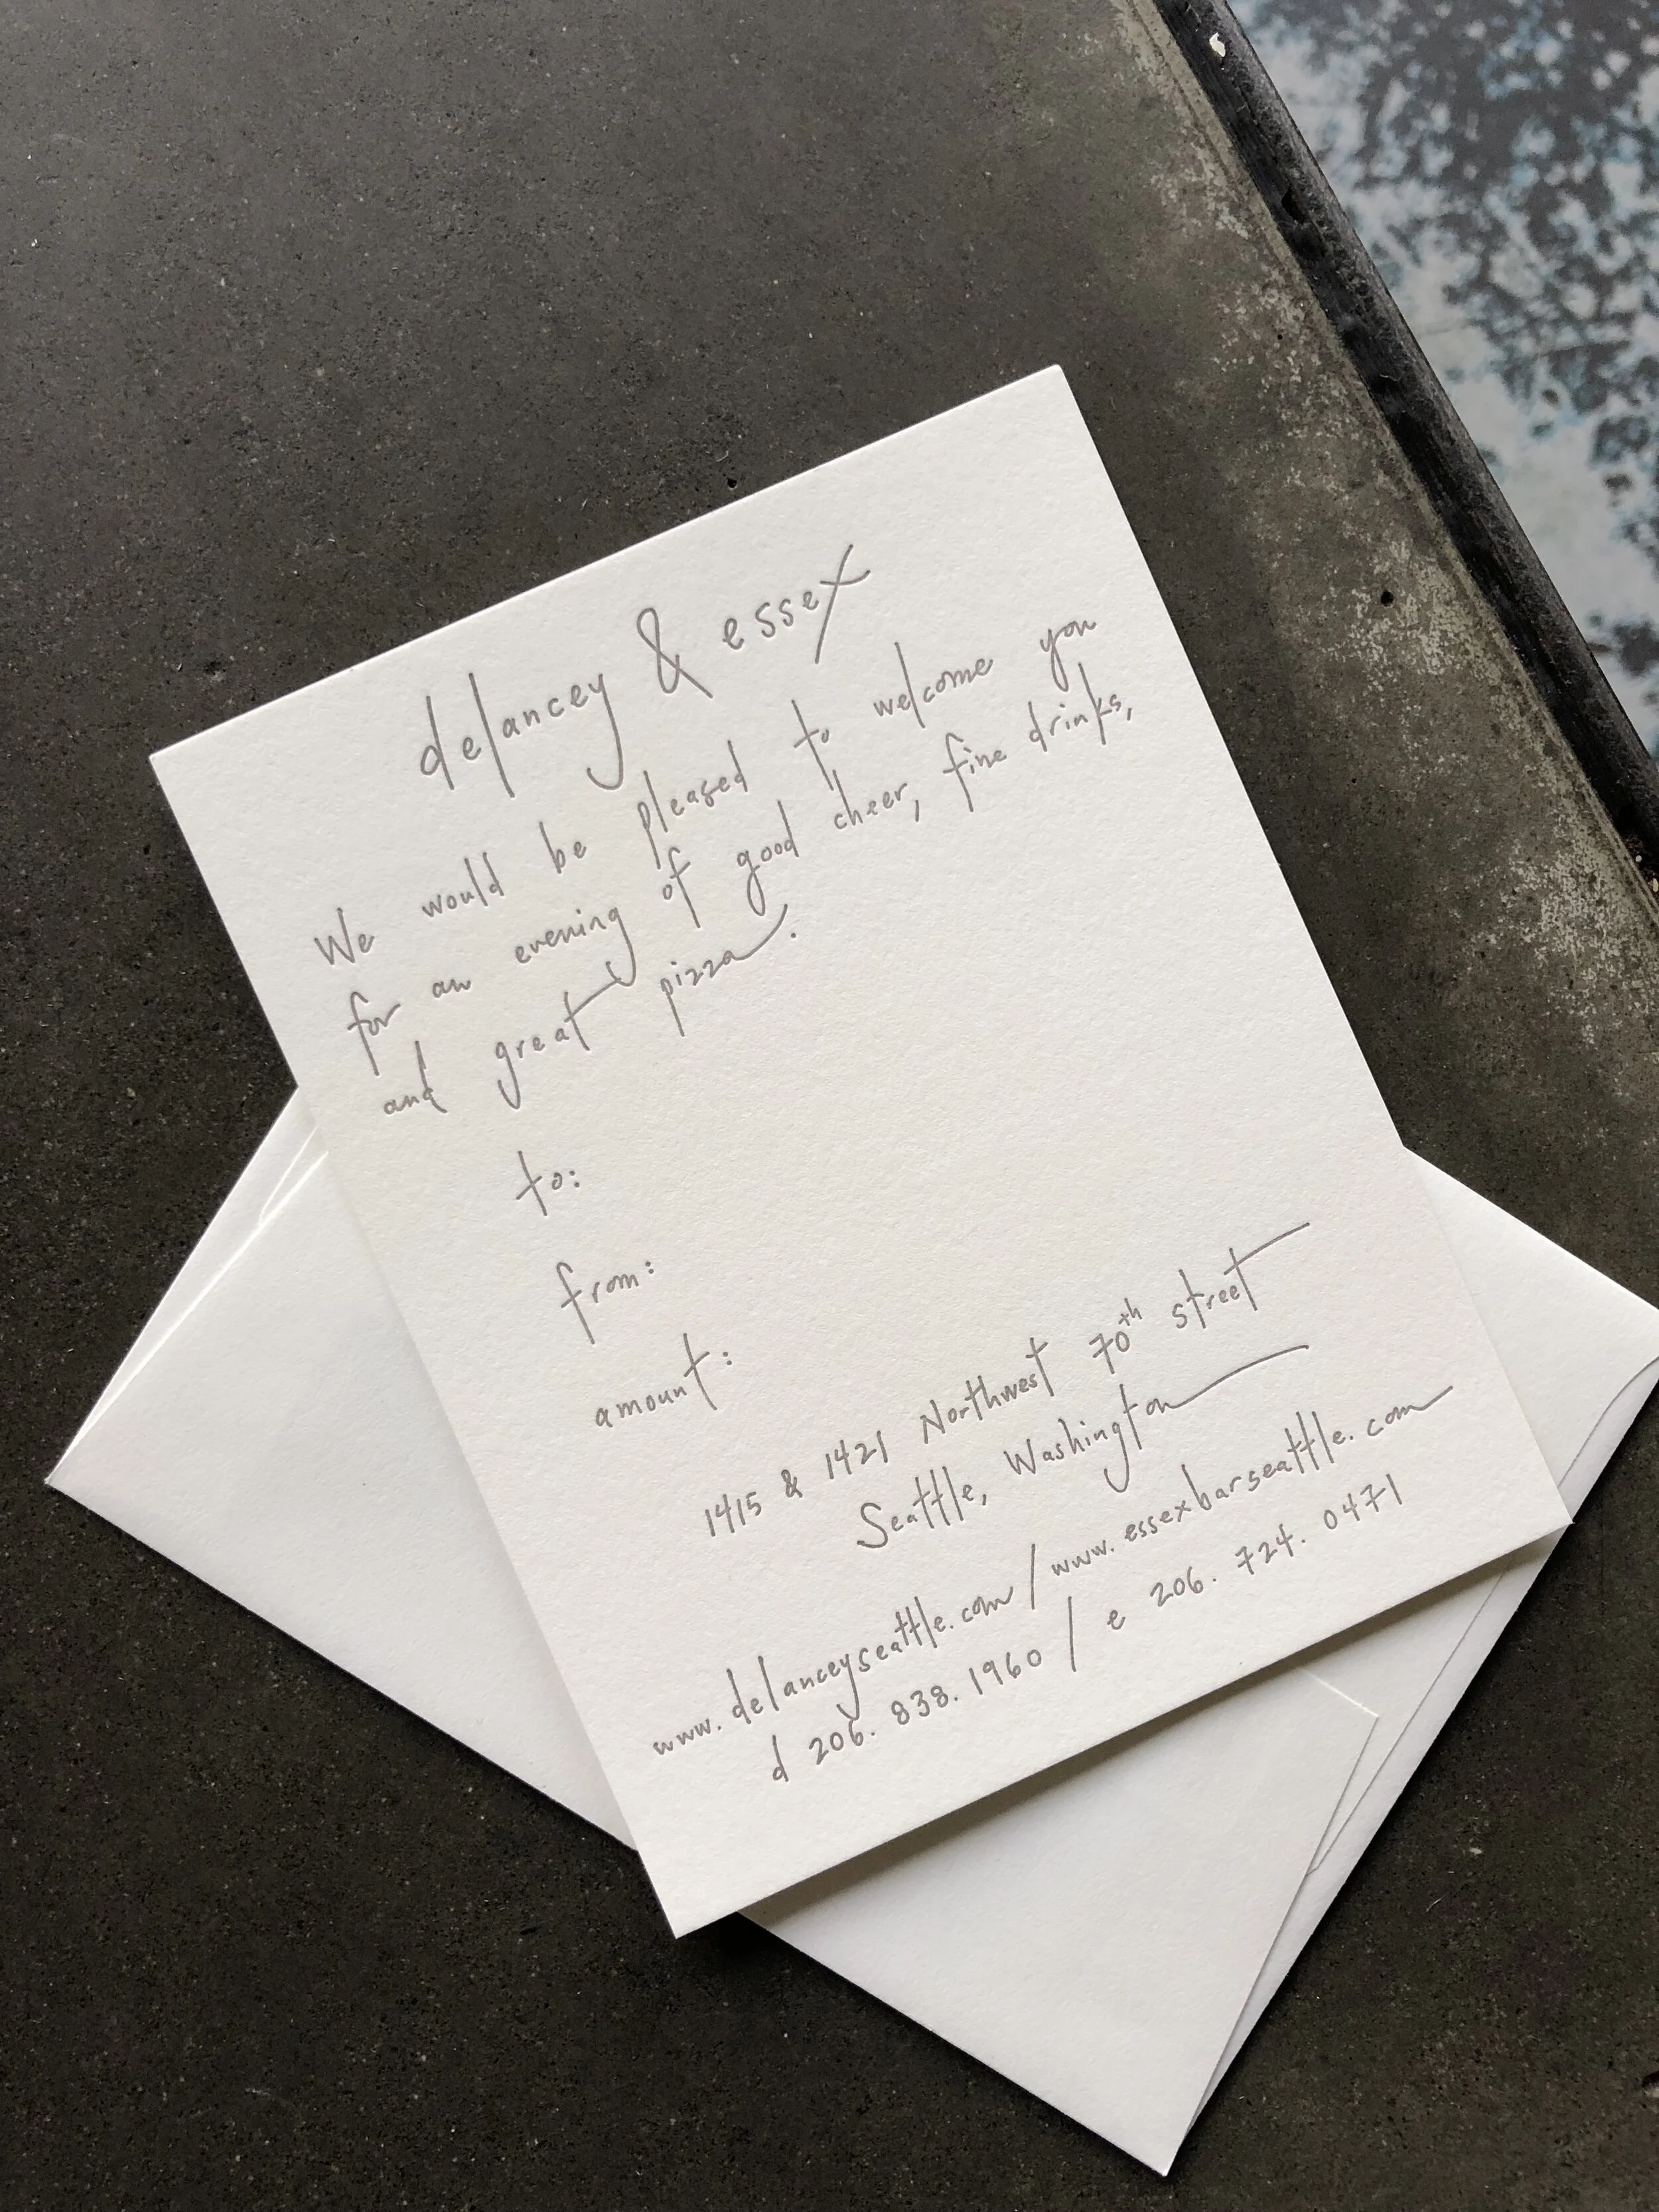 delancey & essex
We would be pleased to welcome you
for an evening of good cheer, fine drinks,
and great pizza.
to:
from:
amount:
1415 & 1421 Northwest 70th street
Seattle, Washington
www.delanceyseattle.com / www.essexbarseattle.com
d 206. 838. 1960 / e 206. 724. 0471